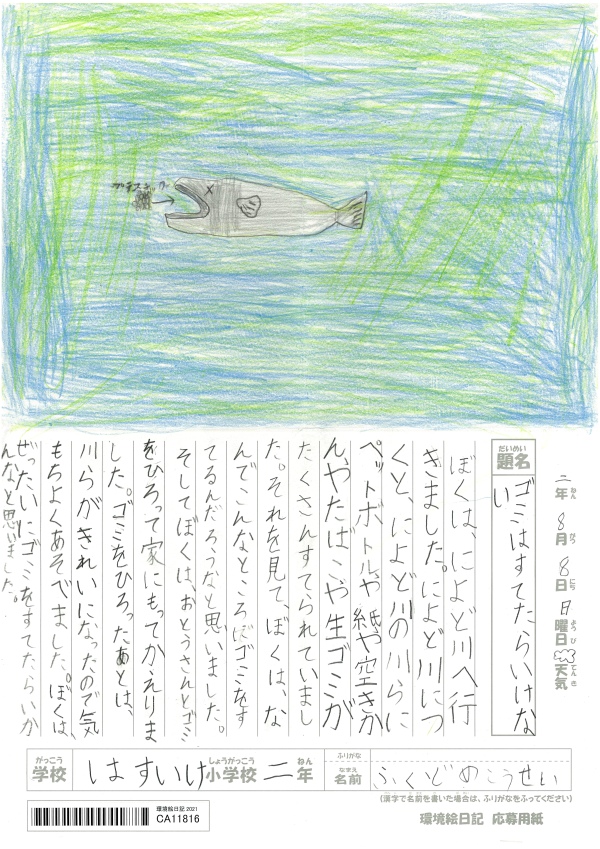 プラスチック
二年8月8日日曜日 天気
ねん がつ にち ようび てんき
だいめい
題名
ゴミはすてたらいけな
い
ぼくは、によど川へ行
きました。によど川につ
くと、によど川の川らに
ペットボトルや紙や空きか
ん、やたばこや生ゴミが
たくさんすてられていまし
た。それを見て、ぼくは、な
んでこんなところにゴミをす
てるんだろうなと思いました。
そしてぼくは、おとうさんとゴミ
をひろって家にもってかえりま
した。ゴミをひろったあとは、
川らがきれいになったので気
もちよくあそでました。ぼくは、
ぜったいにゴミをすてたらいか
んなと思いました。
がっこう しょうがっこう ねん
学校 はすいけ小学校 二年
ふりがな
なまえ
名前 ふくどめこうせい
(漢字で名前を書いた場合は、ふりがなをふってください)
環境絵日記 2021
CA11816
環境絵日記 応募用紙